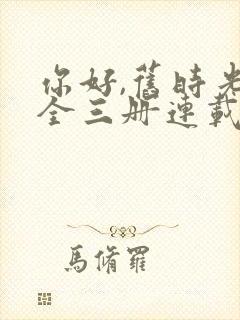 你好,舊時光
全三册連載
馬脩羅